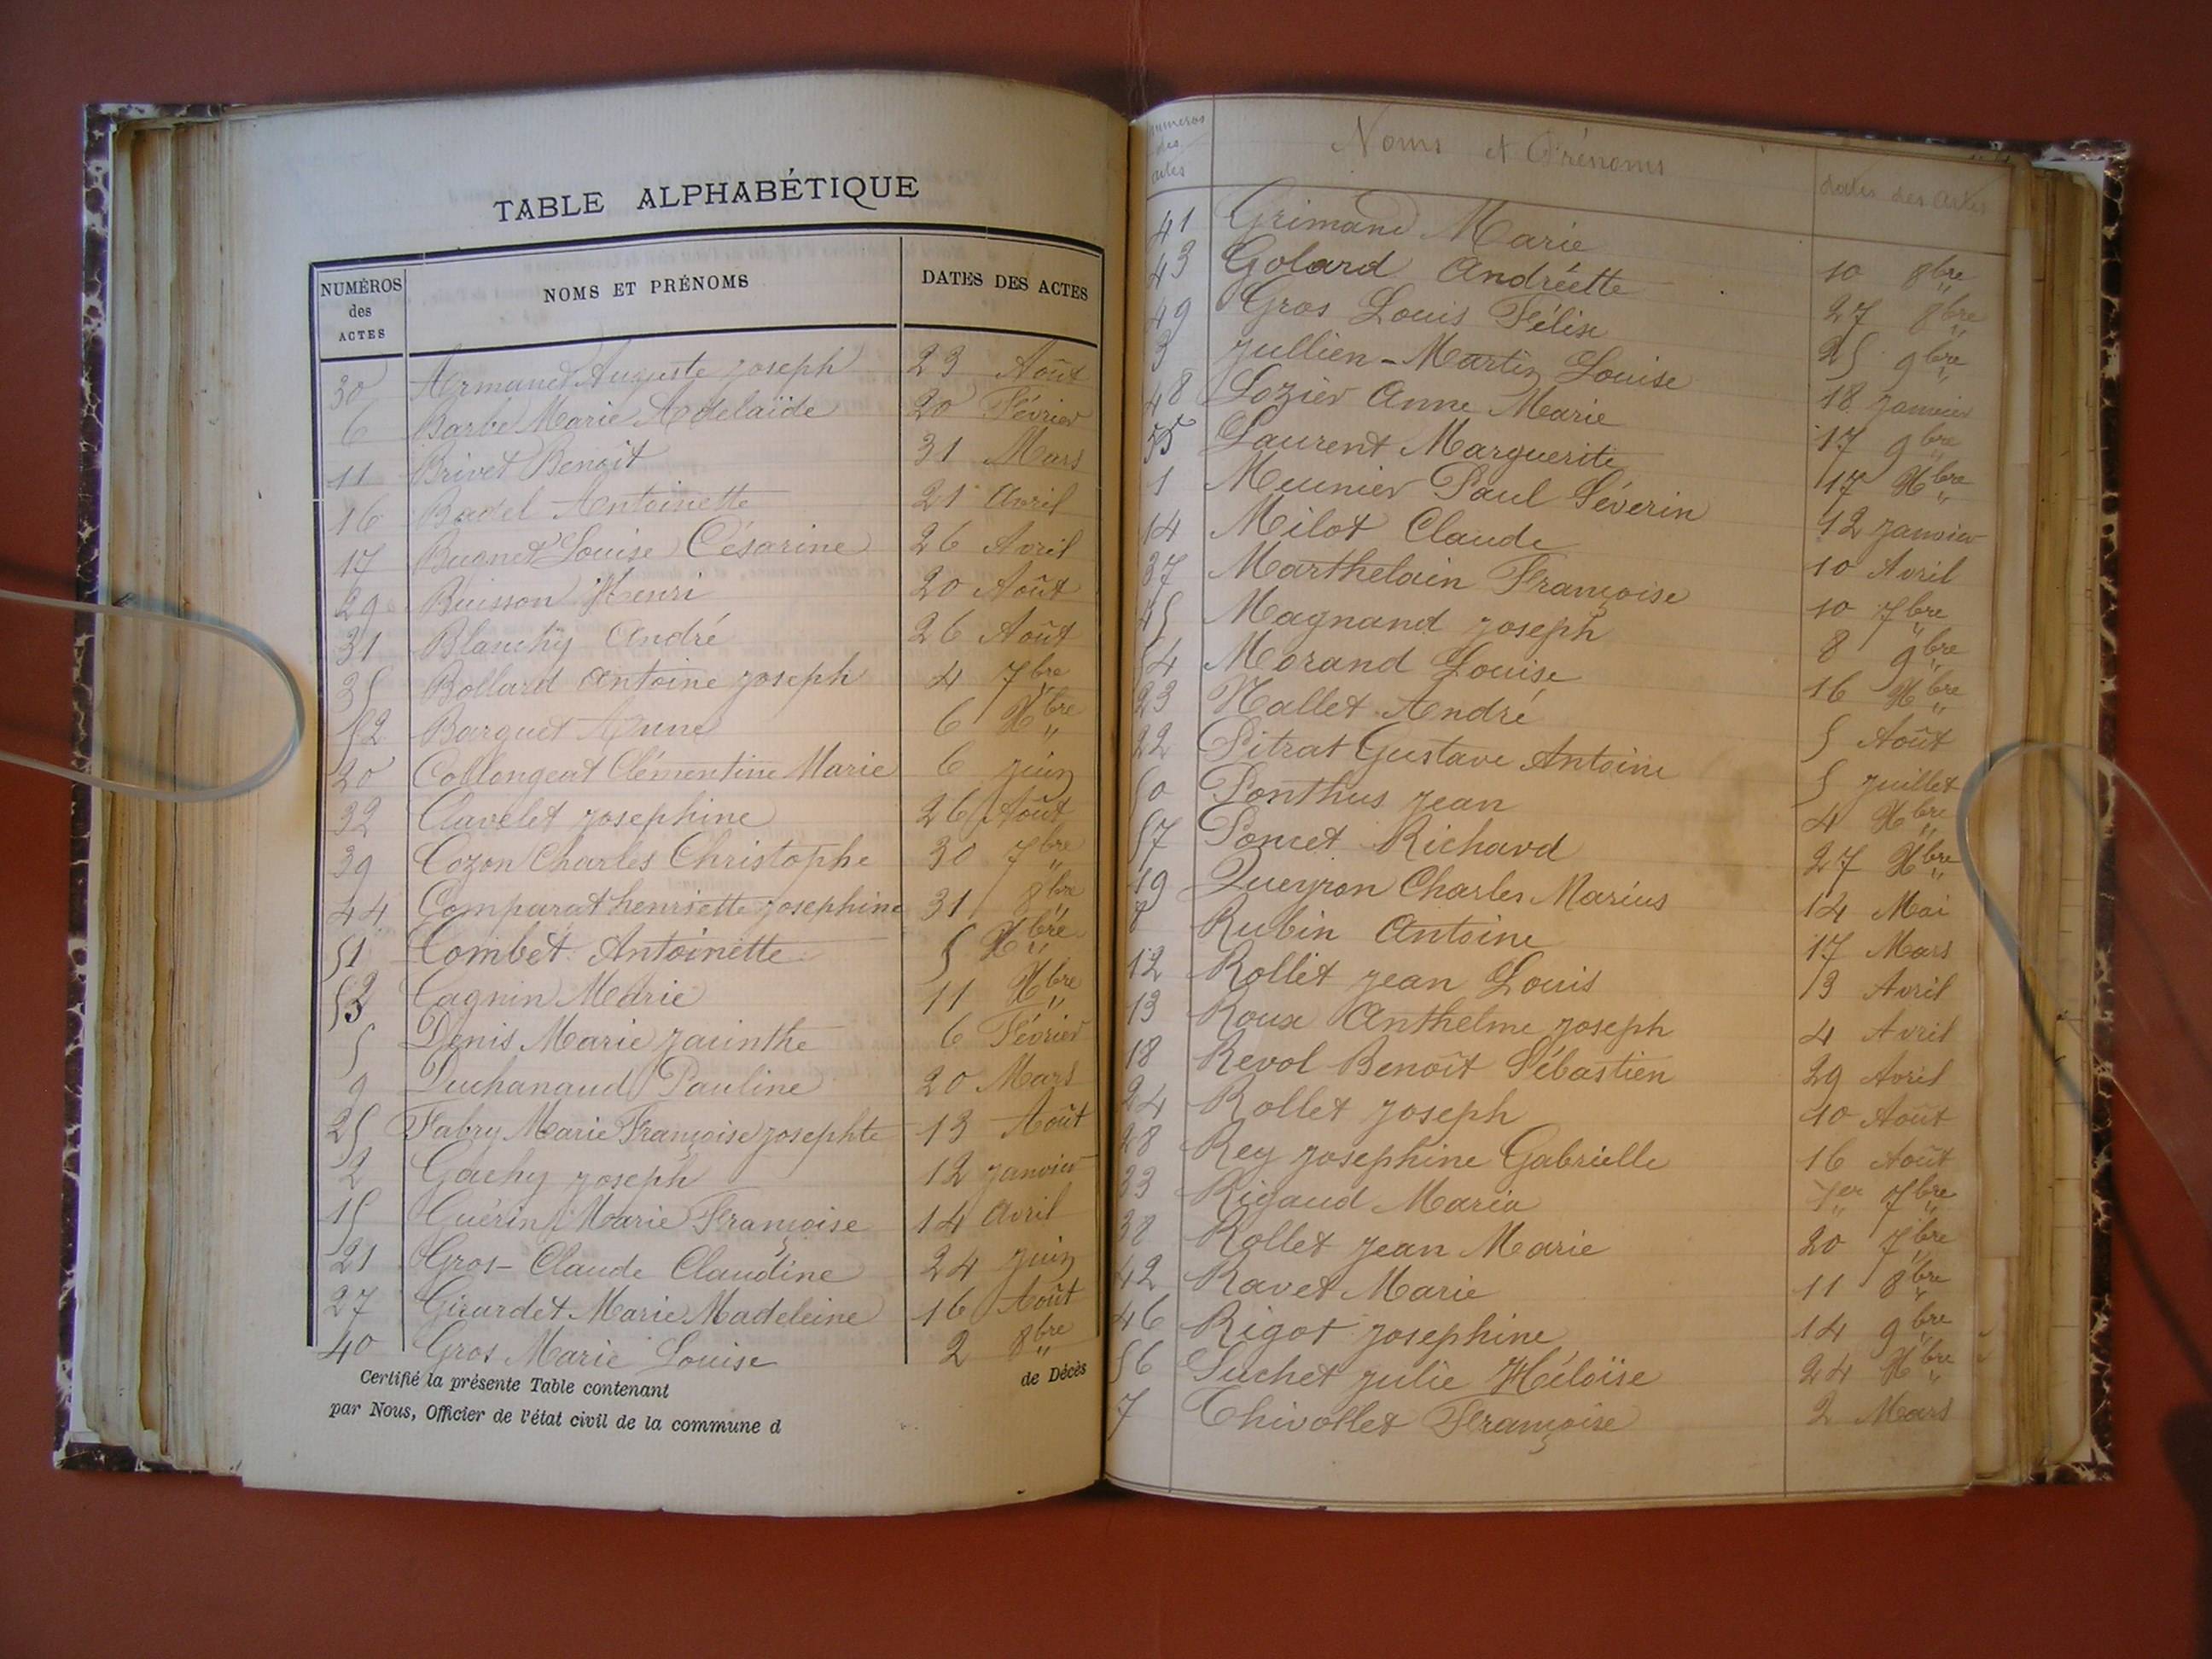 TABLE ALPHABÉTIQUE
NUMÉROS des ACTES NOMS ET PRÉNOMS DATES DES ACTES
30 Armand Auguste joseph 23 Août
6 Barbe Marie Adelaïde 20 Février
11 Brivet Benoit 31 Mars
16 Badel Antoinette 21 Avril
17 Bugnet Louise Césarine 26 Avril
29 Buisson Henri 20 Août
31 Blanchy André 26 Août
35 Bollard Antoine joseph 4 7bre
52 Barguet Anne 6 Xbre
20 Collongeat Clémentine Marie 6 juin
32 Clavelet josephine 26 Août
39 Cozon Charles Christophe 30 7bre
44 Comparat henriette josephine 31 8bre
51 Combet Antoinette 5 Xbre
53 Cagnin Marie 11 Xbre
5 Denis Marie jacinthe 6 Février
9 Duchanaud Pauline 20 Mars
25 Fabry Marie Françoise josephte 13 Août
2 Gachy joseph 12 janvier
15 Guérin Marie Françoise 14 Avril
21 Gros-Claude Claudine 24 juin
27 Girardet Marie Madeleine 16 Août
40 Gros Marie Louise 2 8bre
Certifié la présente Table contenant de Décès
par Nous, Officier de l'état civil de la commune d
numeros des actes Noms et Prénoms dates des actes
41 Grimand Marie 10 8bre
43 Golard Andréette 27 8bre
49 Gros Louis Félix 25 9bre
3 Jullien-Martin Louise 18 janvier
48 Lozier Anne Marie 17 9bre
55 Laurent Marguerite 17 Xbre
1 Meunier Paul Séverin 12 janvier
14 Milot Claude 10 Avril
37 Marthelain Françoise 10 7bre
45 Magnand joseph 8 9bre
54 Morand Louise 16 Xbre
23 Nallet André 5 Août
22 Pitrat Gustave Antoine 5 juillet
50 Ponthus jean 4 Xbre
57 Poncet Richard 27 Xbre
19 Queyron Charles Marius 14 Mai
8 Rubin Antoine 17 Mars
12 Rollet jean Louis 13 Avril
13 Roux Anthelme joseph 4 Avril
18 Revol Benoît Sébastien 29 Avril
24 Rollet joseph 10 Août
28 Rey josephine Gabrielle 16 Août
33 Rigaud Maria 1er 7bre
38 Rollet jean Marie 20 7bre
42 Ravet Marie 11 8bre
46 Rigot josephine 14 9bre
56 Suchet julie Héloïse 24 Xbre
7 Thivollet Françoise 2 Mars